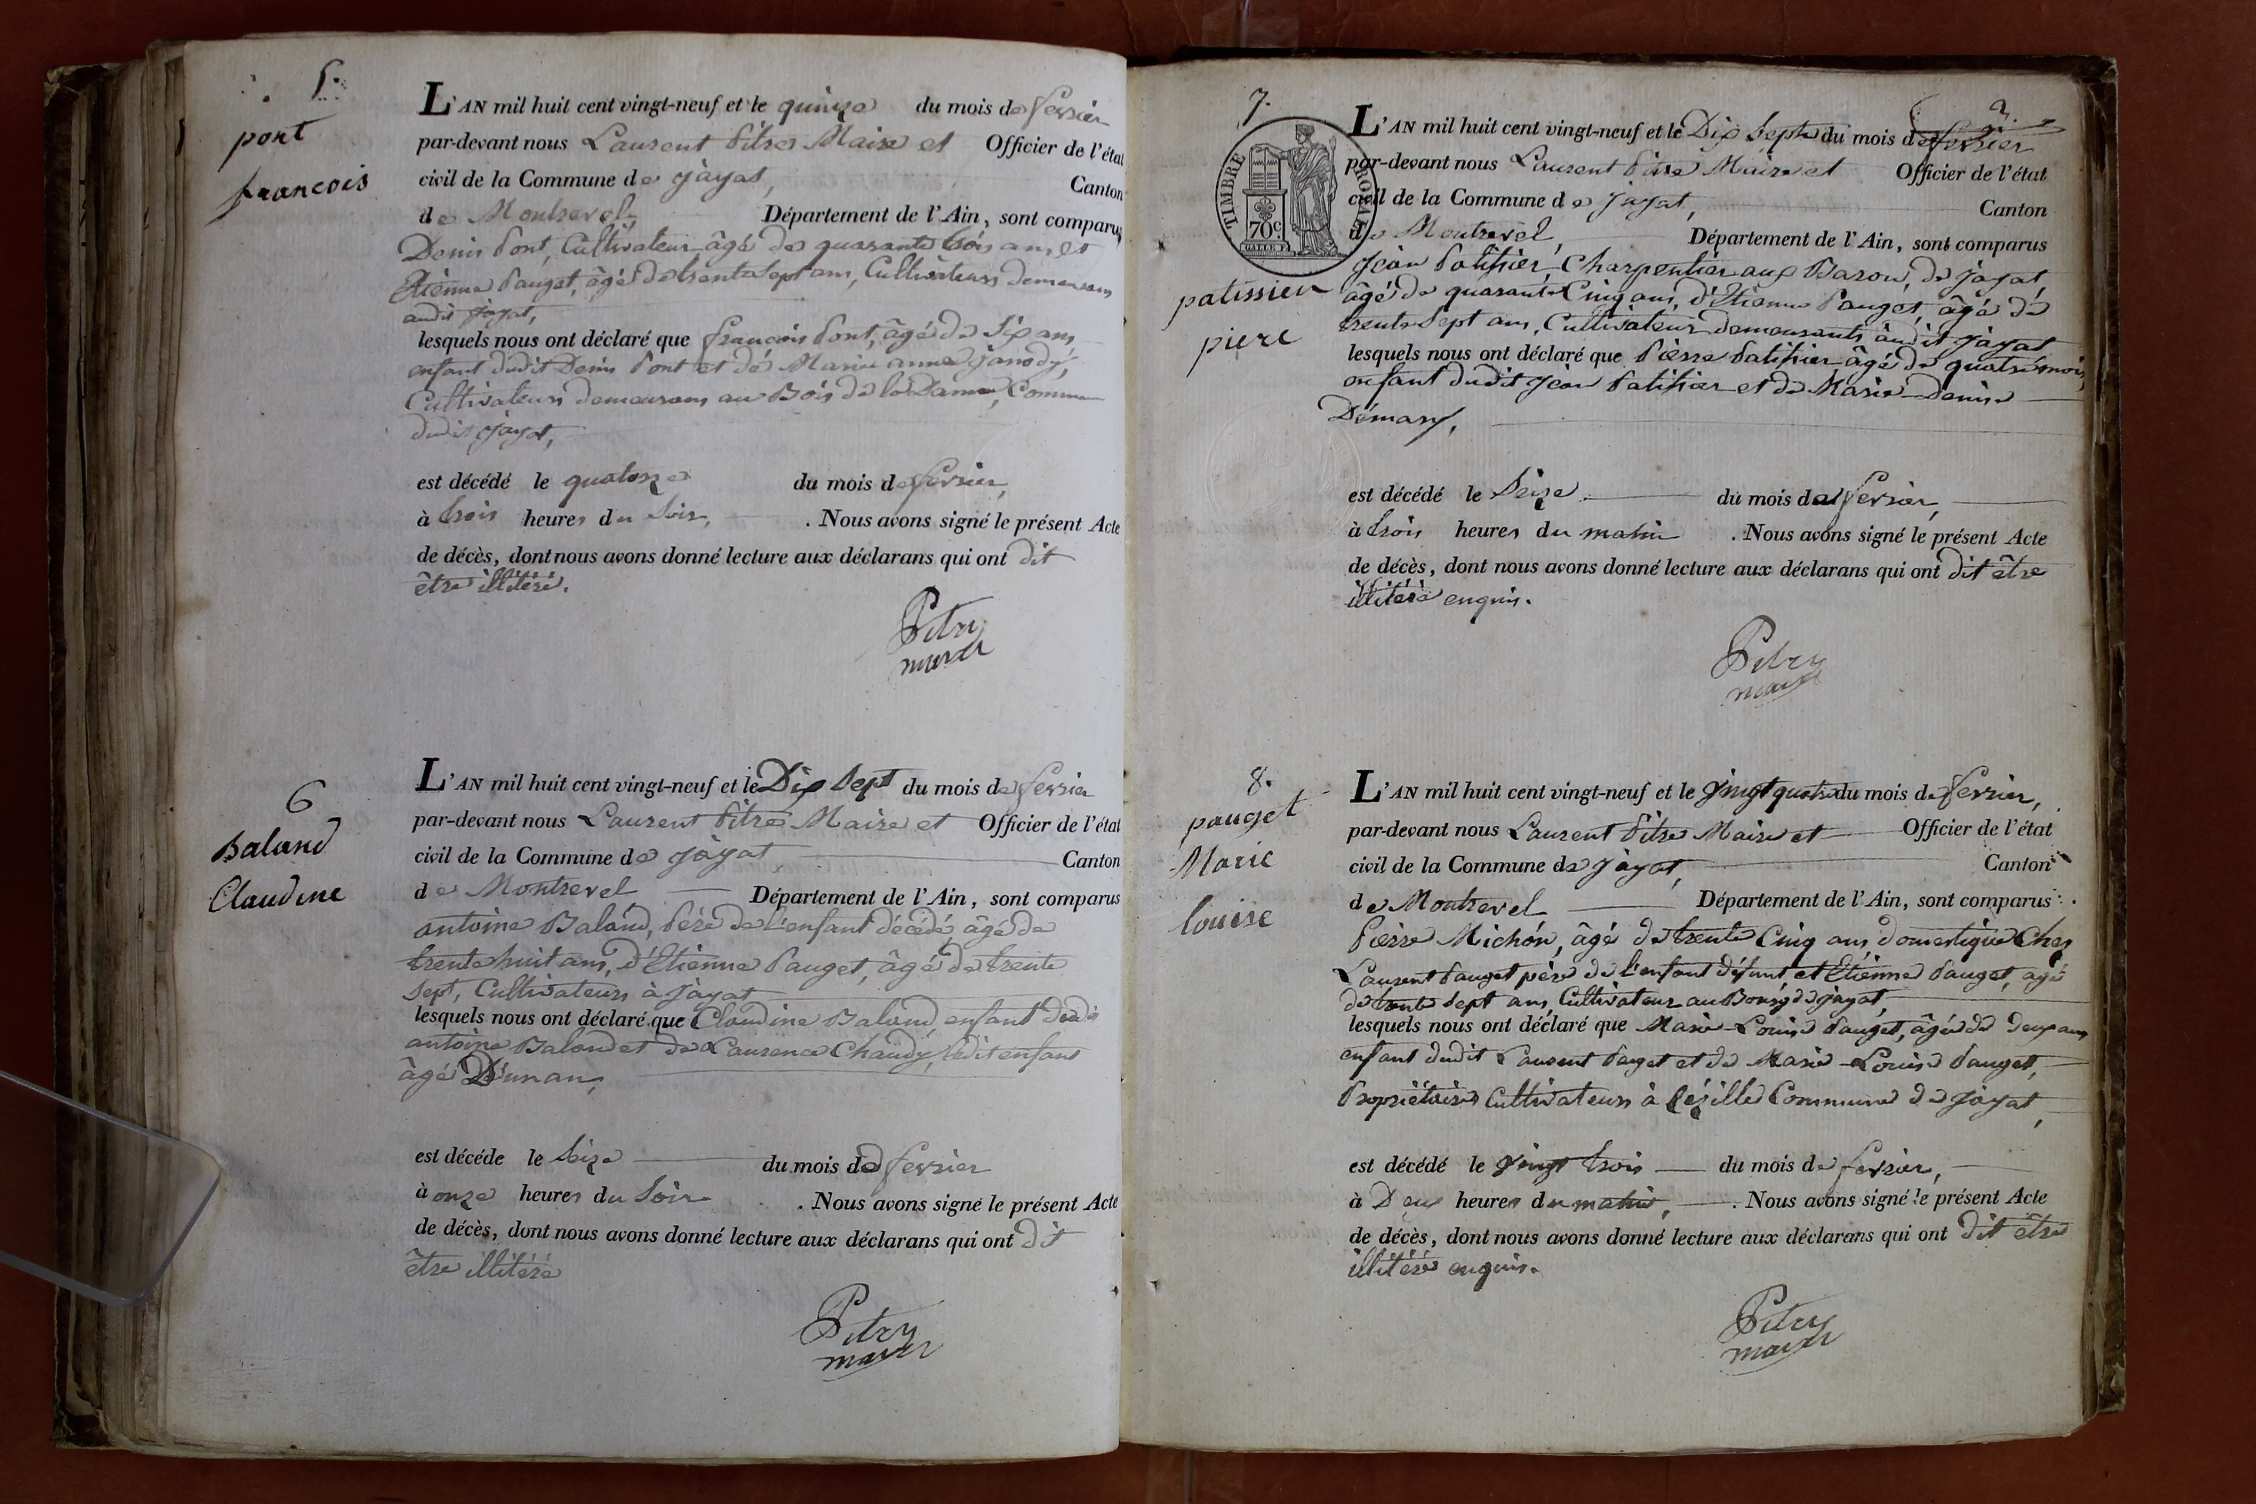 5.
pont
francois
L'AN mil huit cent vingt-neuf et le quinze du mois de fevrier
par-devant nous Laurent Pitre Maire et Officier de l'état
civil de la Commune de Jayat, Canton
de Montrevel, Département de l'Ain, sont comparus
Denis Pont, Cultivateur âgé de quarante trois ans, et
Etienne Pauget, âgé de trente sept ans, Cultivateurs demeurans
audit Jayat,
lesquels nous ont déclaré que francois Pont, âgé de Six ans,
enfant dudit Denis Pont et de Marie anne janody,
Cultivateurs demeurans au Bois de la Dame, Commune
dudit Jayat,
est décédé le quatorze du mois de fevrier,
à trois heures du Soir, . Nous avons signé le présent Acte
de décès, dont nous avons donné lecture aux déclarans qui ont dit
être illitéré.
Pitre
maire
6
Baland
Claudine
L'AN mil huit cent vingt-neuf et le Dix Sept du mois de fevrier
par-devant nous Laurent Pitre Maire et Officier de l'état
civil de la Commune de Jayat, Canton
de Montrevel Département de l'Ain, sont comparus
antoine Baland, Père de l'enfant décédé, âgé de
trente huit ans, d'Etienne Pauget, âgé de trente
Sept, Cultivateurs à Jayat
lesquels nous ont déclaré que Claudine Baland, enfant dudit
antoine Baland et de Laurence Chaudy, ledit enfant
âgé D'un an,
est décédé le Seize du mois de fevrier
à onze heures du Soir . Nous avons signé le présent Acte
de décès, dont nous avons donné lecture aux déclarans qui ont dit
être illitéré
Pitre
maire
7.
patissier
piere
TIMBRE ROYAL
70c.
L'AN mil huit cent vingt-neuf et le Dix Sept du mois de fevrier
par-devant nous Laurent Pitre Maire et Officier de l'état
civil de la Commune de Jayat, Canton
de Montrevel, Département de l'Ain, sont comparus
Jean Patissier, Charpentier aux Baron, de Jayat,
âgé de quarante Cinq ans, d'Etienne Pauget, âgé de
trente Sept ans, Cultivateur demeurants audit Jayat
lesquels nous ont déclaré que Pierre Patissier âgé de quatre mois,
enfant dudit Jean Patissier et de Marie Denise
est décédé le Seize du mois de fevrier,
à trois heures du matin . Nous avons signé le présent Acte
de décès, dont nous avons donné lecture aux déclarans qui ont dit être
illitéré enquis.
Pitre
maire
8.
pauget
Marie
louise
L'AN mil huit cent vingt-neuf et le vingt quatre du mois de fevrier,
par-devant nous Laurent Pitre Maire et Officier de l'état
civil de la Commune de Jayat, Canton
de Montrevel Département de l'Ain, sont comparus
Pierre Michon, âgé de trente Cinq ans, domestique Chez
Laurent Pauget père de l'enfant défunt et Etienne Pauget, agé
de trente Sept ans, Cultivateur au Bourg de jayat,
lesquels nous ont déclaré que Marie-Louise Pauget, âgée de deux ans
enfant dudit Laurent Pauget et de Marie-Louise Pauget,
Propriétaires Cultivateurs à Commune de Jayat,
est décédé le vingt trois du mois de fevrier,
à Deux heures du matin, . Nous avons signé le présent Acte
de décès, dont nous avons donné lecture aux déclarans qui ont dit être
illitéré enquis.
Pitre
maire